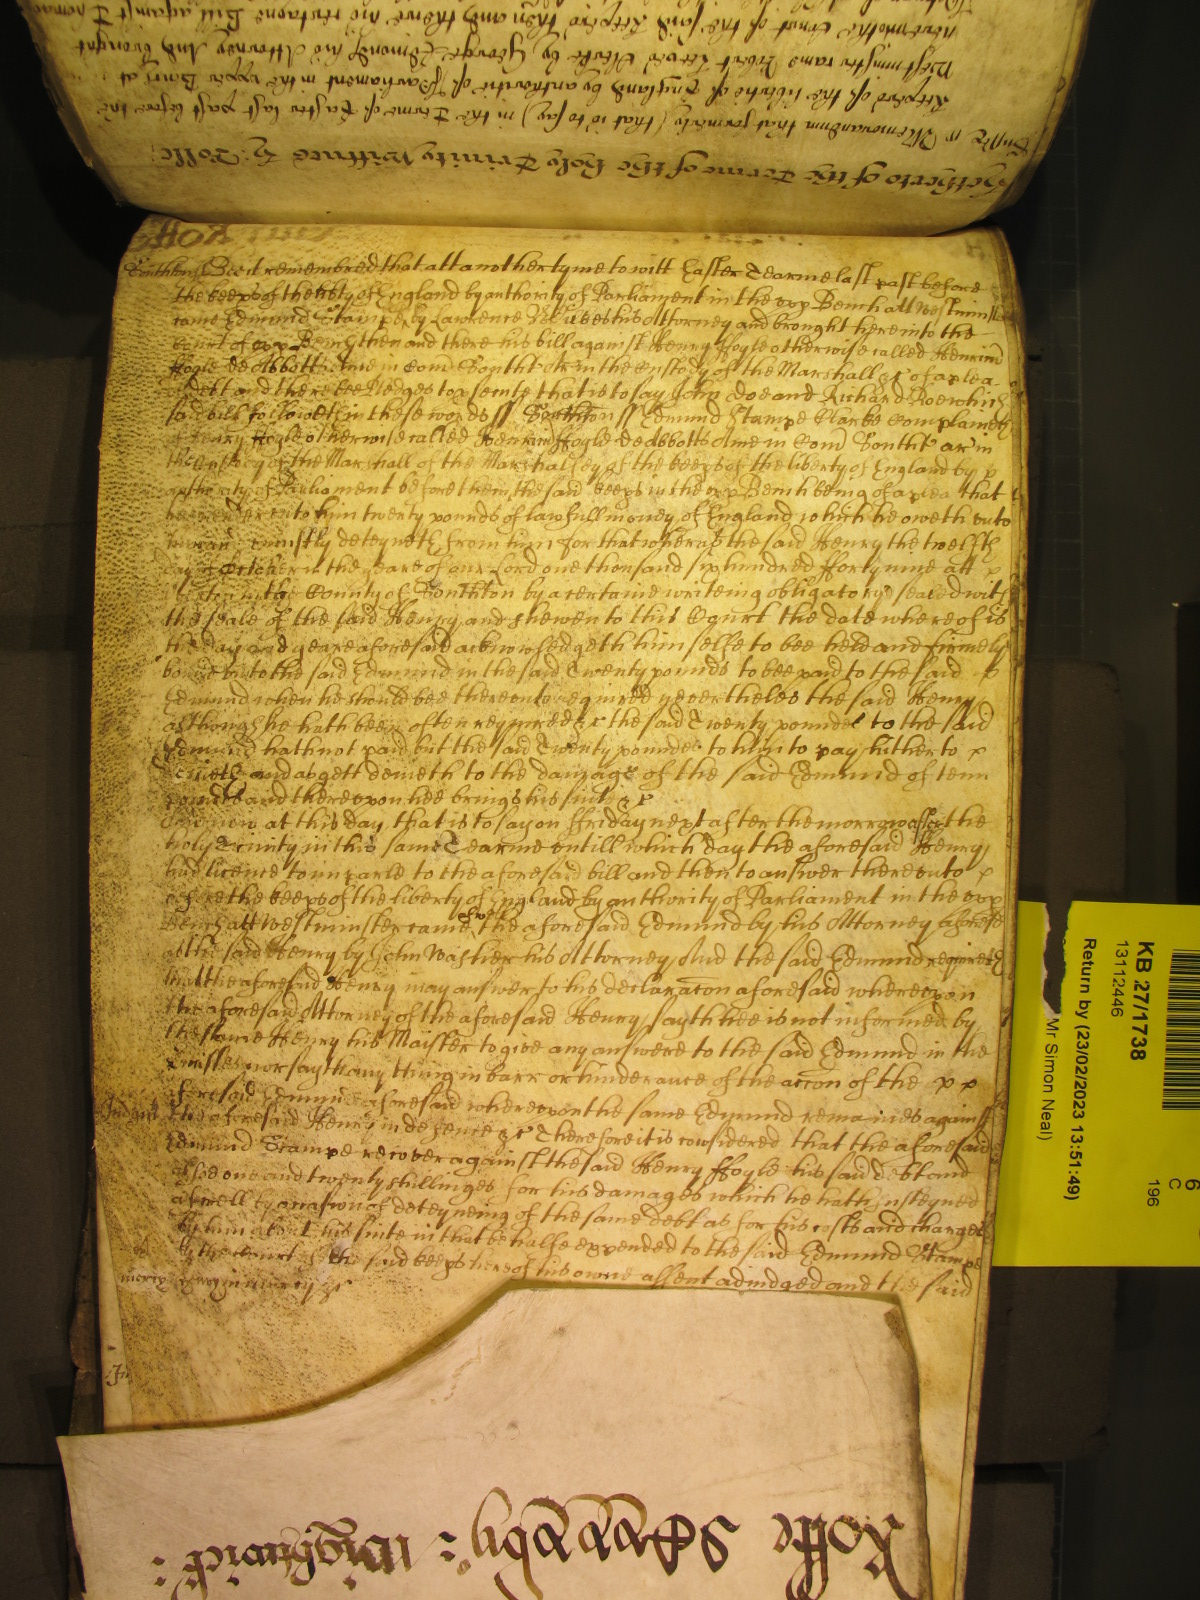 hitherto of the Terme of the holy Trinity Wittnes H: Rolle:
Memorandum that formerly (that is to say) in the Terme of Easter last past before the
keepers of the libertie of England by authoritie of Parliament in the upper Bench at
Westminster came Robert Clarke by George Edmonds his Attorney And brought
here into the Court of the said keepers then and there his certaine Bill against Thomas
Southton ss Bee it remembred that att another tyme to witt Easter Tearme last past before
the keeps of the liberty of England by authority of Parliament in the vpp Bench att Westminst
came Edmund Stampe by Lawrence his Attorney and brought here into the
Court of vpp Bench then and there his bill against Henry Hoyle otherwise called Henricu
Hoyle de Abbotts Ame in Com Southt in the custody of the Marshall &c of a plea
of debt and there bee Pledges to psecute that is to say John Doe and Richard Roe which
said bill followeth in these words ss Southton ss Edmund Stampe Clarke complaineth
of Henry Hoyle otherwise called Henricu Hoyle de Abbotts Ame in Com Southt ar in
the Custody of the Marshall of the Marshalsey of the keeps of the liberty of England by
authority of Parliament before them the said keeps in the vpp Bench being of a plea that
hee render vnto him twenty pounds of lawfull money of England which he oweth vnto
him and iniustly deteyneth from him for that whereas the said Henry the twelfth
day of October in the yeare of our Lord one thousand six hundred fforty nine att
in the County of Southton by a certaine writeing obligatory sealed with
the seale of the said Henry and shewen to this Court the date whereof is
the day and yeare aforesaid acknowledgeth himselfe to bee held and firmely
bound vnto the said Edmund in the said Twenty pounds to bee paid to the said
Edmund when he should bee therevnto required nevertheles the said Henry
although he hath been often required &c the said Twenty pounds to the said
Edmund hath not paid but the said Twenty pounds to him to pay hitherto
denieth and as yett denieth to the damage of the said Edmund of tenn
pounds and therevpon hee brings his suite &c
And now at this day that is to say on ffriday next after the morrow of the
holy Trinity in this same Tearme vntill which day the aforesaid Henry
had licence to imparle to the aforesaid bill and then to answer therevnto
before the keeps of the liberty of England by authority of Parliament in the vpp
Bench att Westminster came the aforesaid Edmund by his Attorney aforesd
as the said Henry by John Washer his Attorney And the said Edmund requireth
that the aforesaid Henry may answer to his declaracon aforesaid wherevpon
the aforesaid Attorney of the aforesaid Henry sayth hee is not informed by
the same Henry his Maister to give any answere to the said Edmund in the
premisses nor sayth any thing in barr or hinderance of the accon of the
aforesaid Edmund aforesaid wherevpon the same Edmund remaines against
Judgmt the aforesaid Henry in defence &c Therefore it is considered that the aforesaid
Edmund Stampe recover against the said Henry Hoyle his said debt and
alsoe one and twenty shillinges for his damages which he hath susteyned
aswell by occasion of deteyneing of the same debt as for his costs and charges
by him about his suite in that behalfe expended to the said Edmund Stampe
by the Court of the said keeps hereof his owne assent adiudged and the said
mercy Henry in mercy &c
KB 27/1738
13112446
Return by (23/02/2023 13:51:49)
Mr Simon Neal)
196
C
6
Rolle